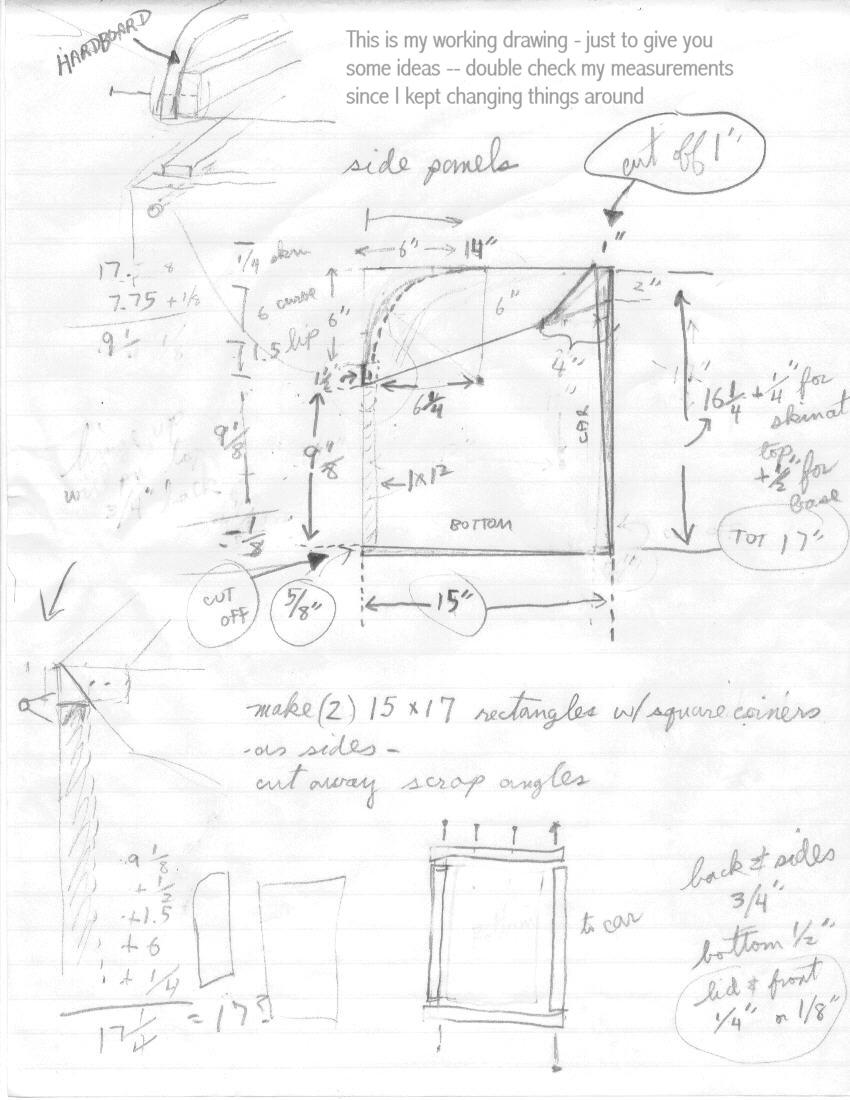 HARDBOARD
This is my working drawing - just to give you
some ideas -- double check my measurements
since I kept changing things around
side panels
cut off 1"
6" 14" 1"
17. 8
7.75 + 1/8
9 1/8
1/4 skin
6 curve
1.5 lip
6"
6"
2"
4"
1 1/2"
6 1/4
9 1/8
9 1/8"
1x12
CAR
16 1/4 + 1/4" for
skin at
top
+ 1/2" for
base
3/4" back
- 1/8
BOTTOM
TOT 17"
CUT
OFF
5/8"
15"
make (2) 15 x 17 rectangles w/ square corners
- as sides -
cut away scrap angles
9 1/8
+ 1/2
+ 1.5
+ 6
+ 1/4
17 1/4 = 17?
to car
back & sides
3/4"
bottom 1/2"
lid & front
1/4" or 1/8"